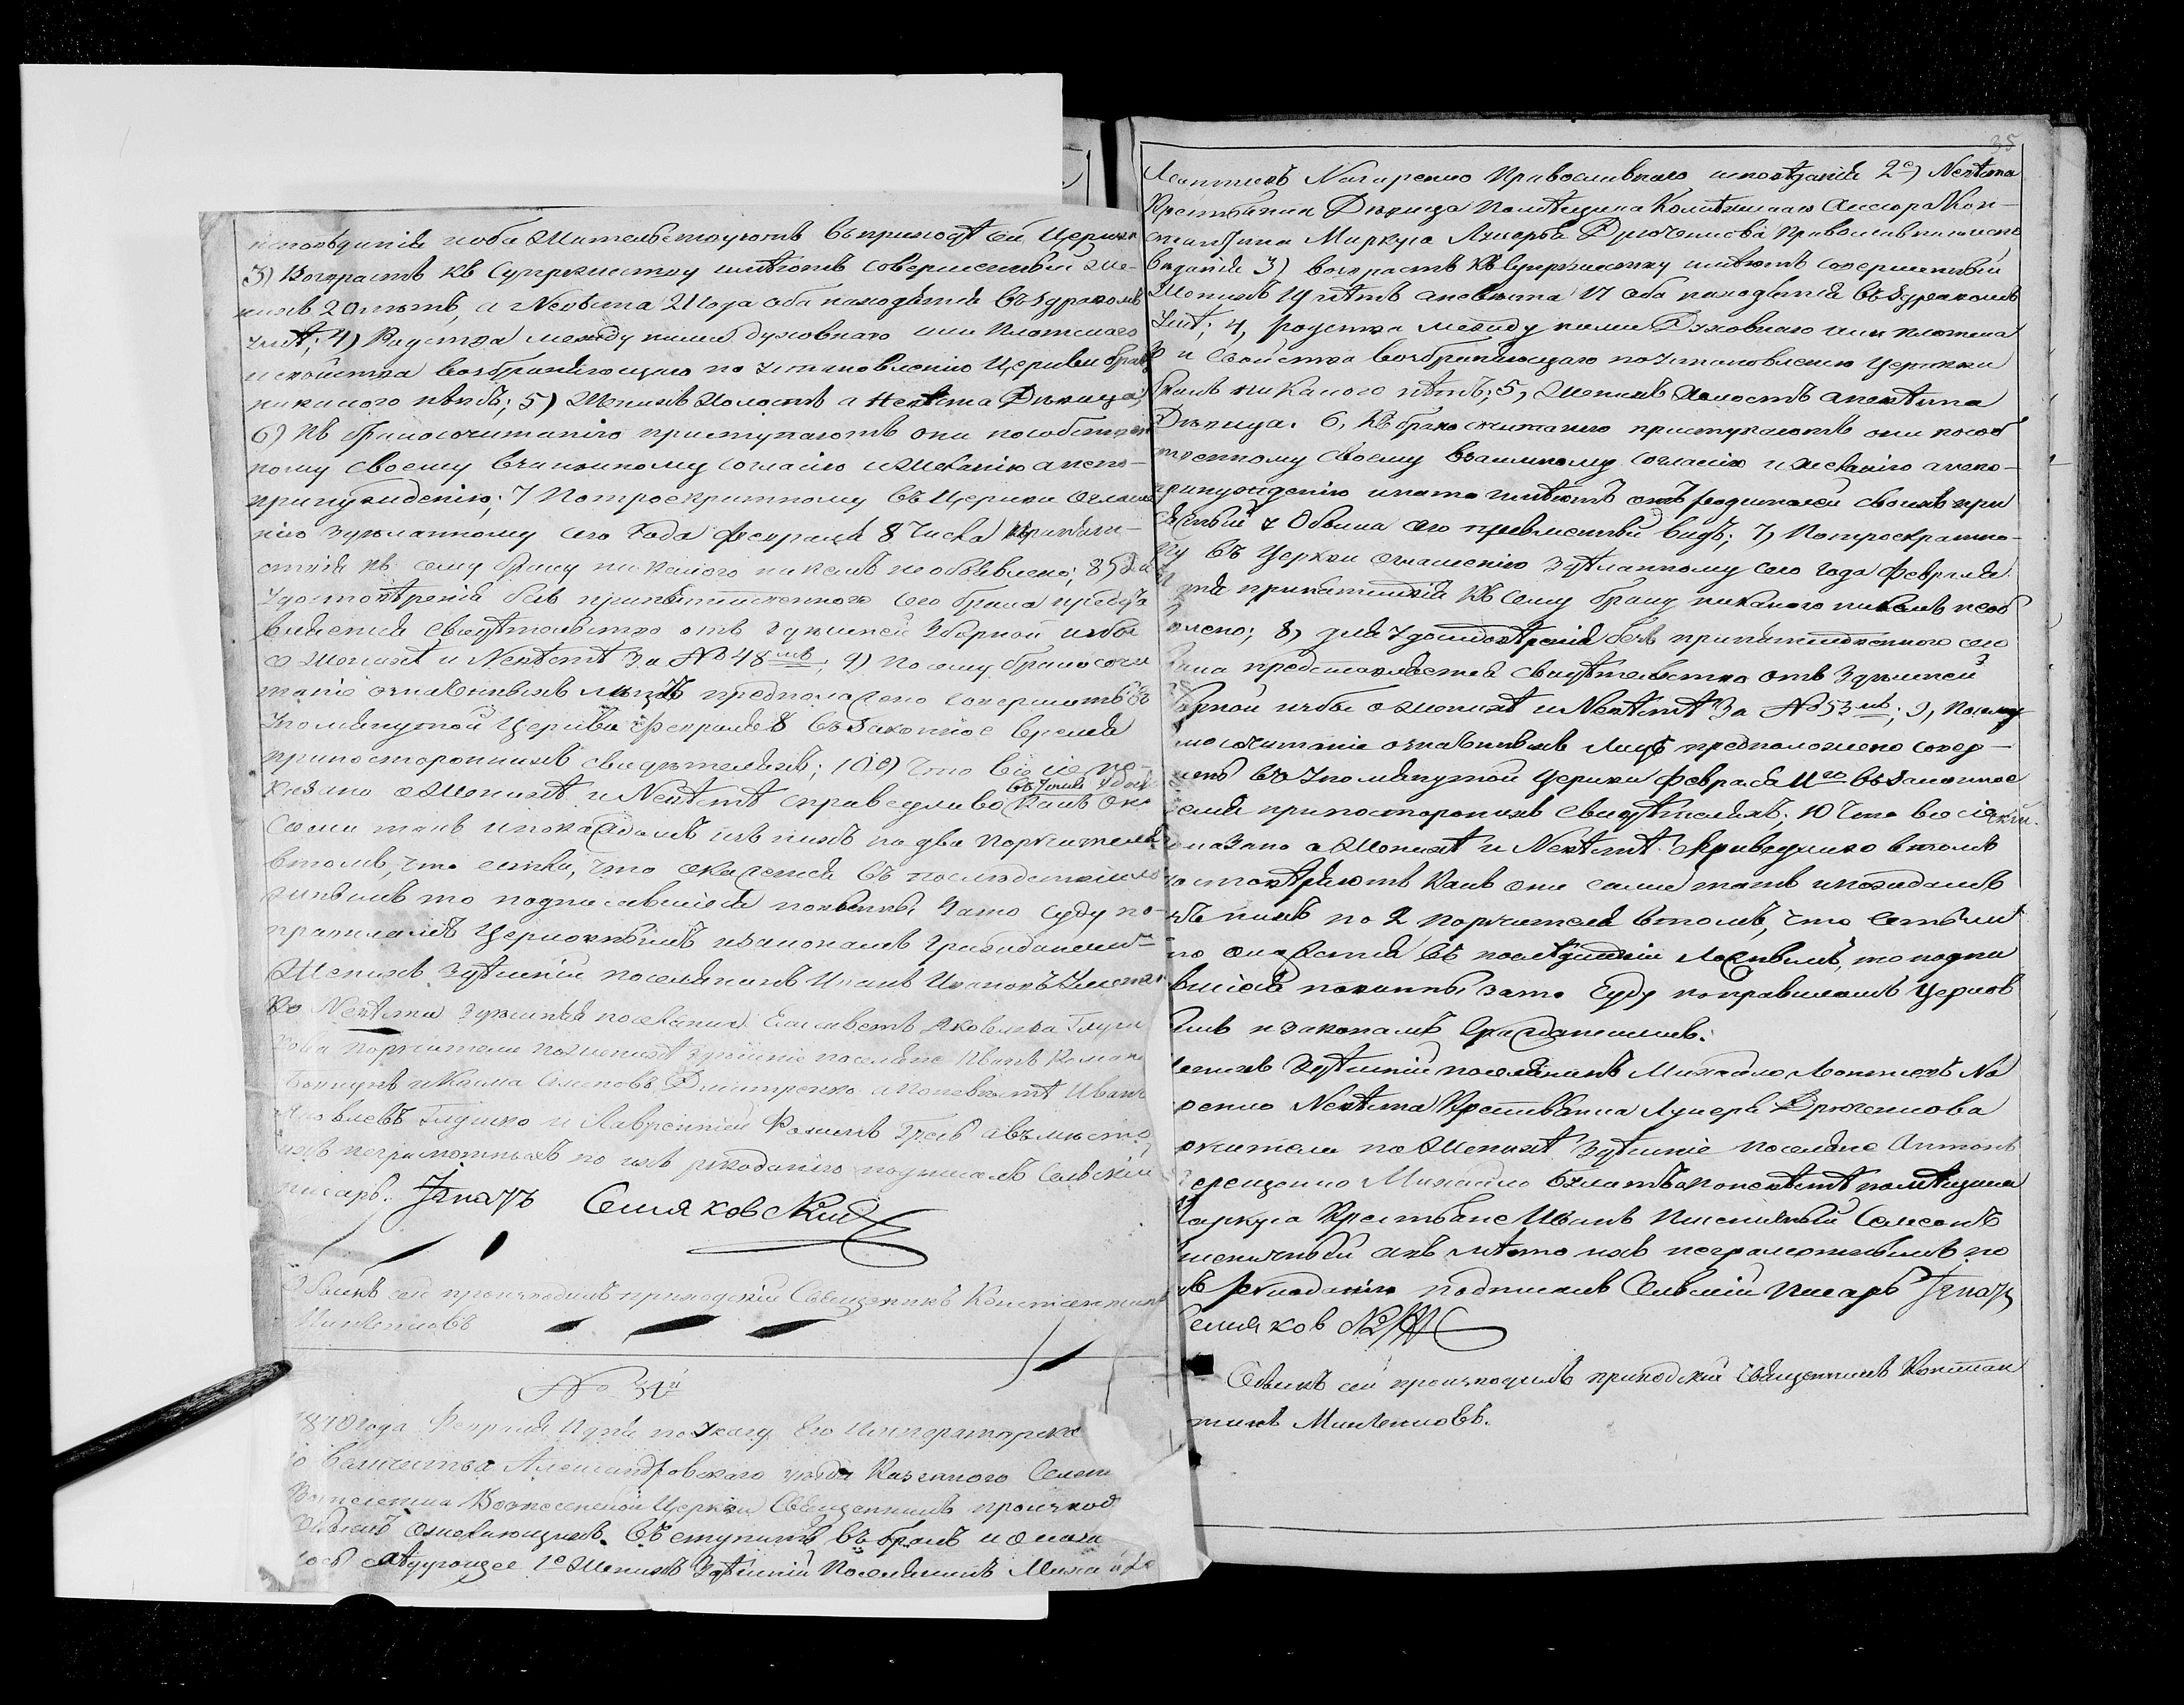 исповѣданія и оба жительствуютъ въ приходѣ сей Церкви
3) Возрастъ къ Супружеству имѣютъ совершенный же-
нихъ 20 лѣтъ, а Невѣста 21 года оба находятся въ здравомъ
умѣ; 4) Родства между ними духовнаго или плотскаго
и свойства возбраняющаго по установленію Церкви бракъ
никакого нѣтъ; 5) Женихъ Холостъ а Невѣста Дѣвица;
6) Къ бракосочитанію приступаютъ они по собствен
ному своему взаимному согласію и желанію а не по-
принужденію; 7 По троекратному въ Церкви оглаше
нію здѣланному сего года Февраля 8 Числа
сему браку никакого никемъ не объявлено; 8)
Удостовѣренія безъ препятственного сего брака предста
вляется Свидѣтельство отъ здѣшней Зборной избы
о Женихѣ и Невѣстѣ за № 48мъ; 9) По сему бракосочи
таніе означенныхъ лицъ предположено совершить въ
упомянутой Церкви Февраля 8 въ Законное время
при постороннихъ свидѣтеляхъ; 10е) Что все сіе по-
казано о Женихѣ и Невѣстѣ справедливо въ томъ Какъ они
Сами такъ и по каждомъ изъ нихъ по два поручителя
втомъ, что естли, что окажется въ послѣдствіи
ложнымъ то подписавшіеся повинны Зато Суду по-
правиламъ Церковнымъ и законамъ Гражданскимъ
Женихъ здѣшній поселянинъ Иванъ Ивановъ
ко Невѣста здѣшняя поселянка Елисаветъ Яковлева
Поручители по женихѣ здѣшніе поселяне Иванъ
и Козма Семеновъ Дмитренко а по невѣстѣ Иванъ
Яковлевъ Глушко и Лаврентій Фоминъ авъмѣсто
ихъ неграмотныхъ по ихъ рукоданію подписалъ Сельскій
писарь. Игнатъ Семяковскій
Обыскъ сей производилъ приходскій Священникъ Константинъ

№ 34й
1840 года Февраля 11 дня по Указу Его Императорска
го Величества Александровского уѣзда Казенного Селен
Вознесенской Церкви Священникъ производ
Обыскъ ожелающихъ въступить въ бракъ и оказа
лось слѣдующее 1е Женихъ Здѣшній Поселянинъ Михайло
35
Леонтіевъ Православнаго исповѣданія 2е) Невѣста
Крестьянка Дѣвица Помѣщика Колежскаго Ассесора Кон-
стантина Маркуса Православнаго испо
вѣданія 3) возрастъ къ Супружеству имѣютъ совершенный
Женихъ 19 лѣтъ аневѣста 17 оба находятся въ здравомъ
умѣ; 4, родства между ними Духовнаго или плотска
го и Свойства возбраняющаго по установленію Церкви
бракъ никакого нѣтъ; 5, Женихъ Холостъ аневѣста
Дѣвица. 6, Къ бракосочитанію приступаютъ они по соб
ственному своему взаимному согласію и желанію анепо-
принужденію инато имѣютъ отъ родителей своихъ при
видъ; 7, По троекратно-
му въ Церкви оглашенію здѣланному сего года Февраля
къ сему браку никакого никемъ необ
явлено; 8, для удостовѣренія безъ препятственного сего
брака представляется Свидѣтельство отъ Здѣшней
Зборной избы о женихѣ и Невѣстѣ за № 53мъ; 9, По сему
бракосочитаніе означенныхъ Лицъ предположено совер-
шить въ Упомянутой Церкви Февраля 11го въ Законное
время при постороннихъ Свидѣтеляхъ; 10 Что все сіе
показано о Женихѣ и Невѣстѣ справедливо втомъ
удостовѣряютъ Какъ они сами такъ и по каждомъ
изъ нихъ по 2 поручителя втомъ, что естьли
что окажется въ послѣдствіи ложнымъ, то подпи
савшіеся повинны зато Суду поправиламъ Церков
нымъ и законамъ Гражданскимъ.
Женихъ Здѣшній поселянинъ Михайло Леонтіевъ
Невѣста Крестьянка
Поручители по Женихѣ Здѣшніе поселяне Антонъ
Терещенко Михайло по невѣстѣ помѣщика
Маркуса Крестьяне Иванъ Пшеничный Семенъ
Пшеничный авъ мѣсто ихъ неграмотныхъ по
ихъ рукоданію подписалъ Сельскій Писарь Игнатъ
Семяковскій
Обыскъ сей производилъ приходскій Священникъ Констан
тинъ